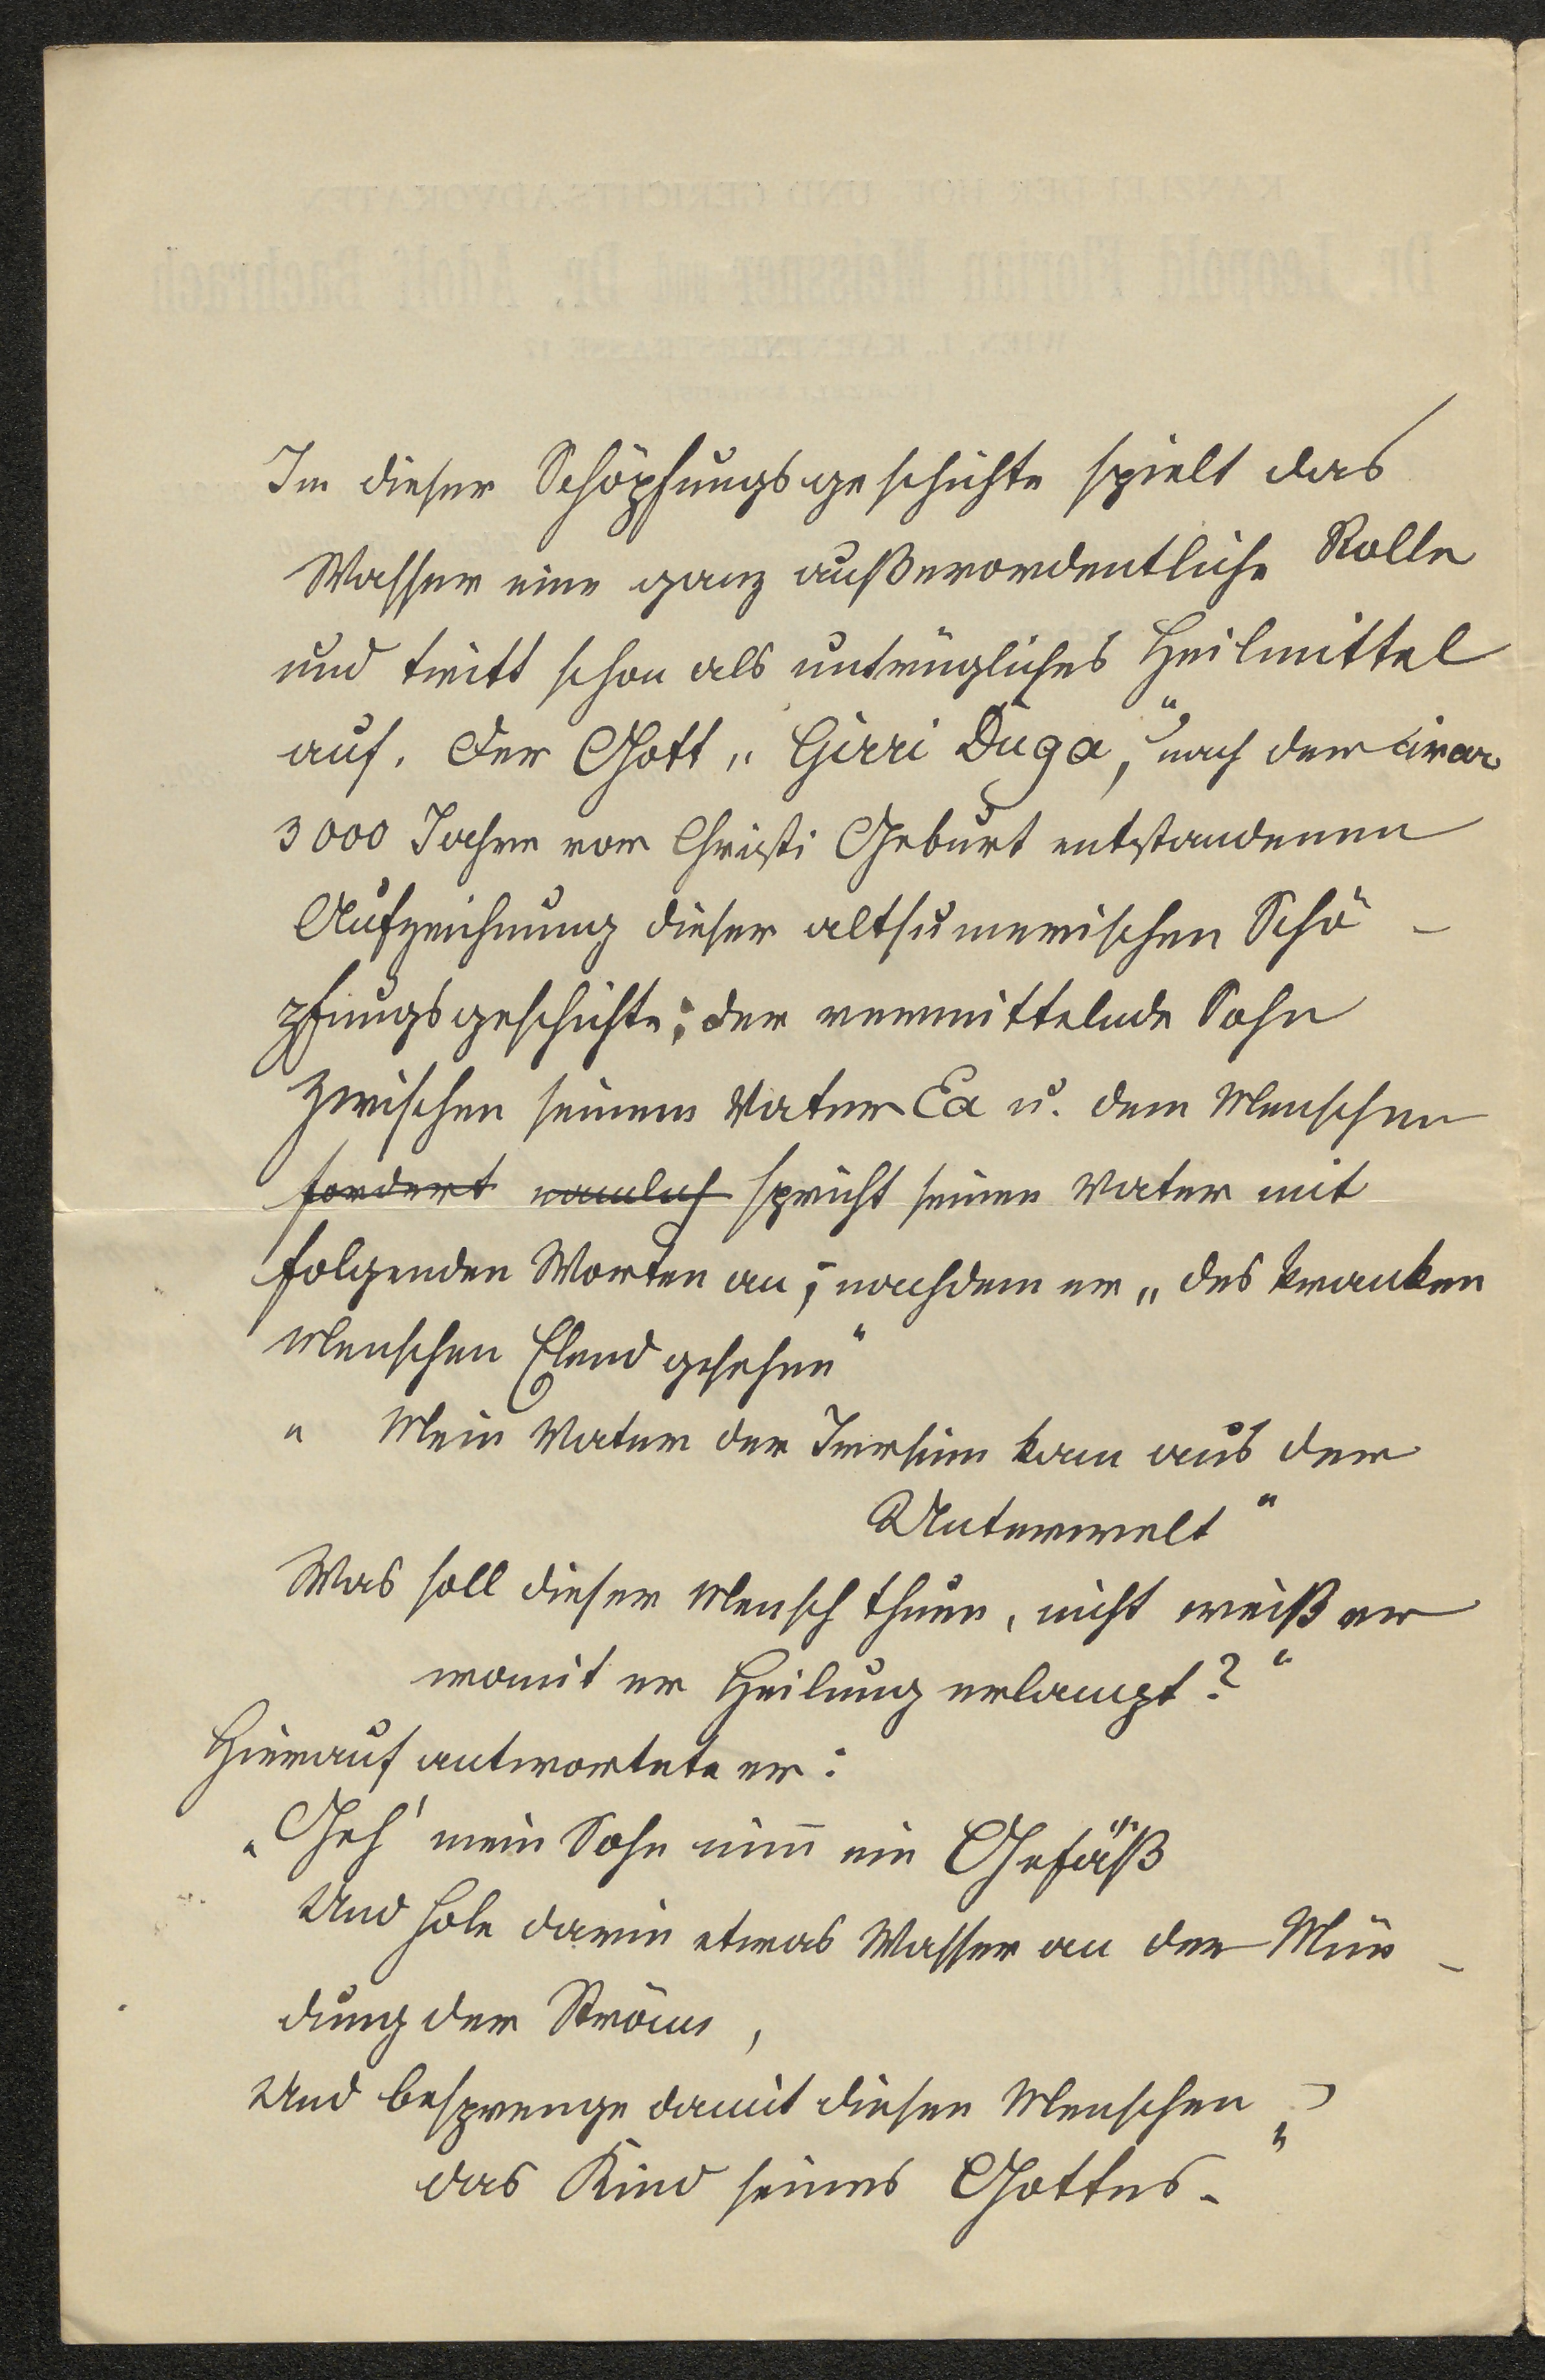 In dieser Schöpfungsgeschichte spielt das
Wasser eine ganz außerordentliche Rolle
und tritt schon als untrügliches Heilmittel
auf. Der Gott „Girri Dúga," nach der circa
3000 Jahre vor Christi Geburt entstandenen
Aufzeichnung dieser altsumerischen Schö-
pfungsgeschichte; der vermittelnde Sohn
zwischen seinem Vater Ea u. dem Menschen
fordert nämlich spricht seinen Vater mit
folgenden Worten an; nachdem er „des kranken
Menschen Elend gesehen"
" Mein Vater der Irrsinn kam aus der
Unterwelt"
Was soll dieser Mensch thun, nicht weiß er
womit er Heilung erlangt?"
Hierauf antwortete er:
„Geh' mein Sohn nim̄ ein Gefäß
Und hole darin etwas Wasser an der Mün-
dung der Ströme,
Und besprenge damit diesen Menschen
das Kind seines Gottes."
KANZLEI DER HOF UND GERICHTSADVOKATEN
Dr. Leopold Florian Meissner und Dr. Adolf Bachrach
WIEN, I., KÄRNTNERSTRASSE